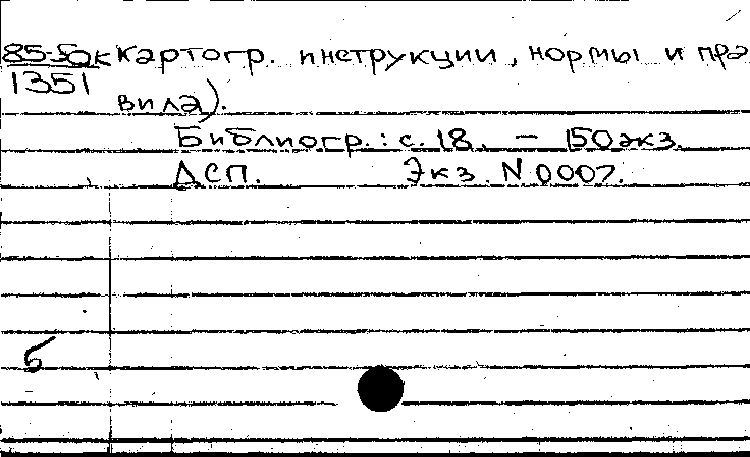 85-5дк картогр. инструкции, нормы и пра
1351
вила).
Библиогр.: с. 18. – 150 экз.
ДСП. Экз. N 0007.
б